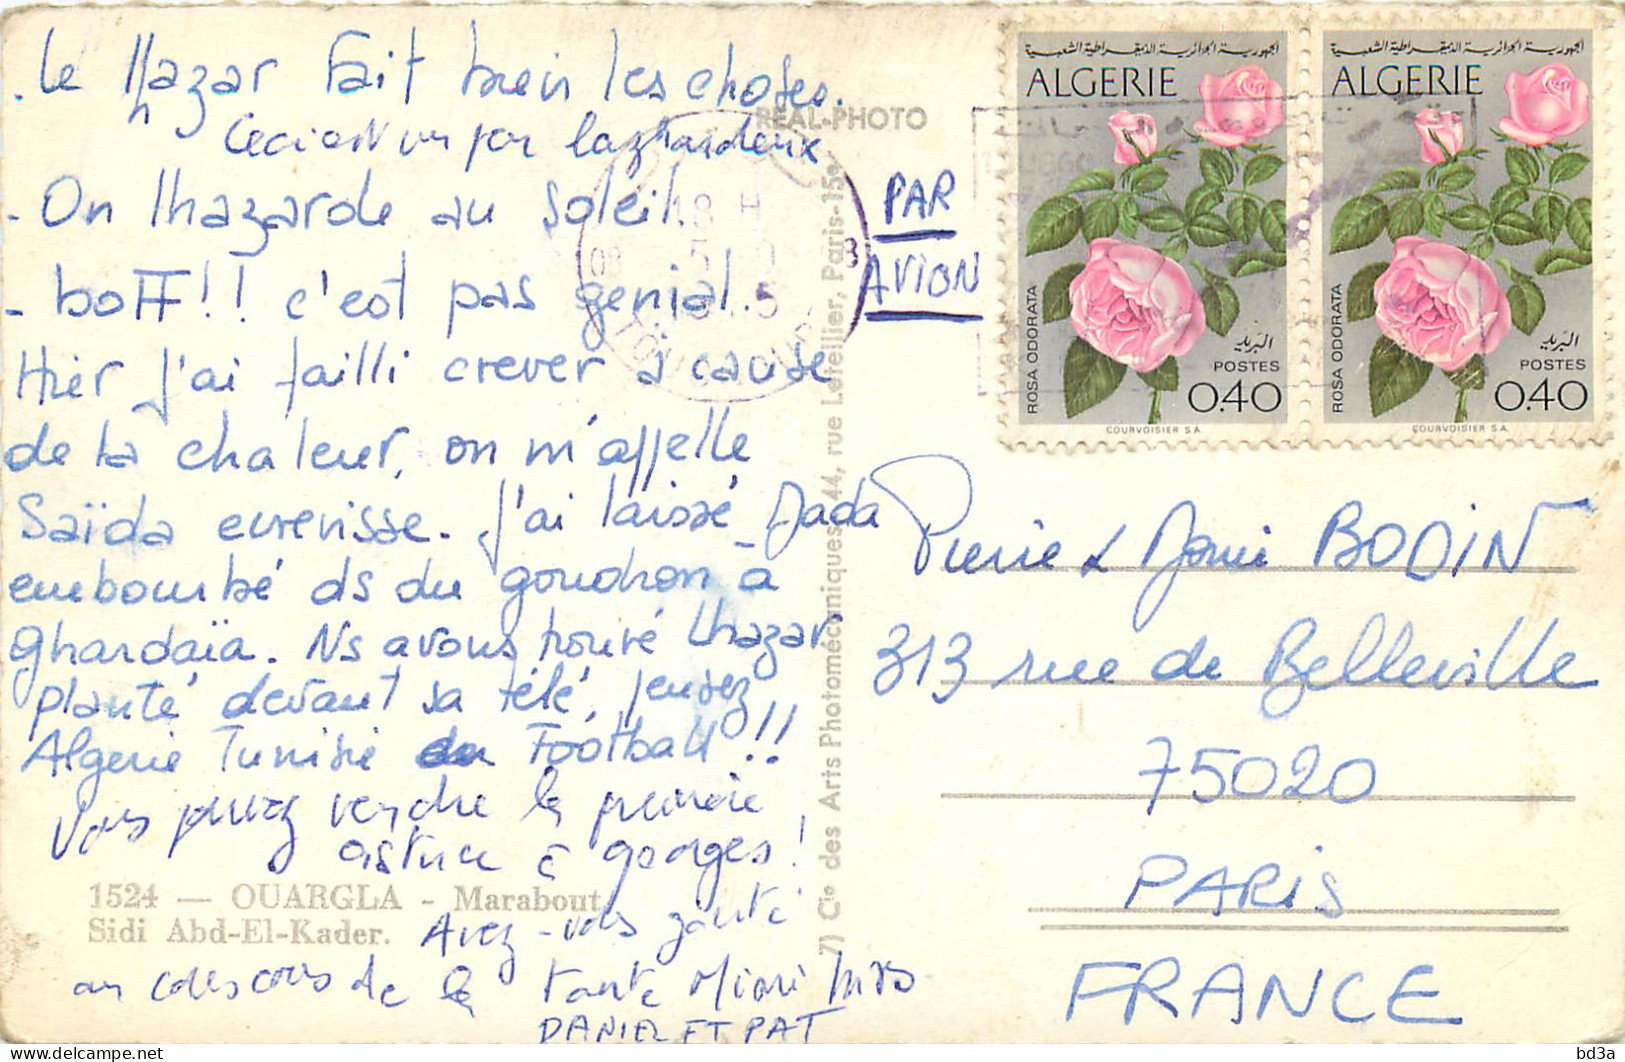 . Le hazar fait bien les choses.
Ceci est un per lazhardeux
- On lhazarde au soleil.
- boFF!! c'est pas genial..
Hier j'ai failli crever à cause
de la chaleur, on m'appelle
Saïda ecrevisse. J'ai laissé Dada
embourbé ds du goudron a
ghardaïa. Ns avons trouvé Lhazar,
planté devant sa télé, pensez
Algerie Tunisie Football!!
Vous pouvez vendre la première
astuce à georges!
Avez-vous
au concours de la tante
DANIEL ET PAT
1524 — OUARGLA - Marabout
Sidi Abd-El-Kader.
REAL-PHOTO
7) Cie des Arts Photomécaniques, 44, rue Letellier, Paris-15e
PAR
AVION
الجمهورية الجزائرية الديمقراطية الشعبية
ALGERIE
ROSA ODORATA
البريد
POSTES
0.40
COURVOISIER S.A.
الجمهورية الجزائرية الديمقراطية الشعبية
ALGERIE
ROSA ODORATA
البريد
POSTES
0.40
COURVOISIER S.A.
18 H
Pierre & Marie BODIN
313 rue de Belleville
75020
PARIS
FRANCE
bd3a